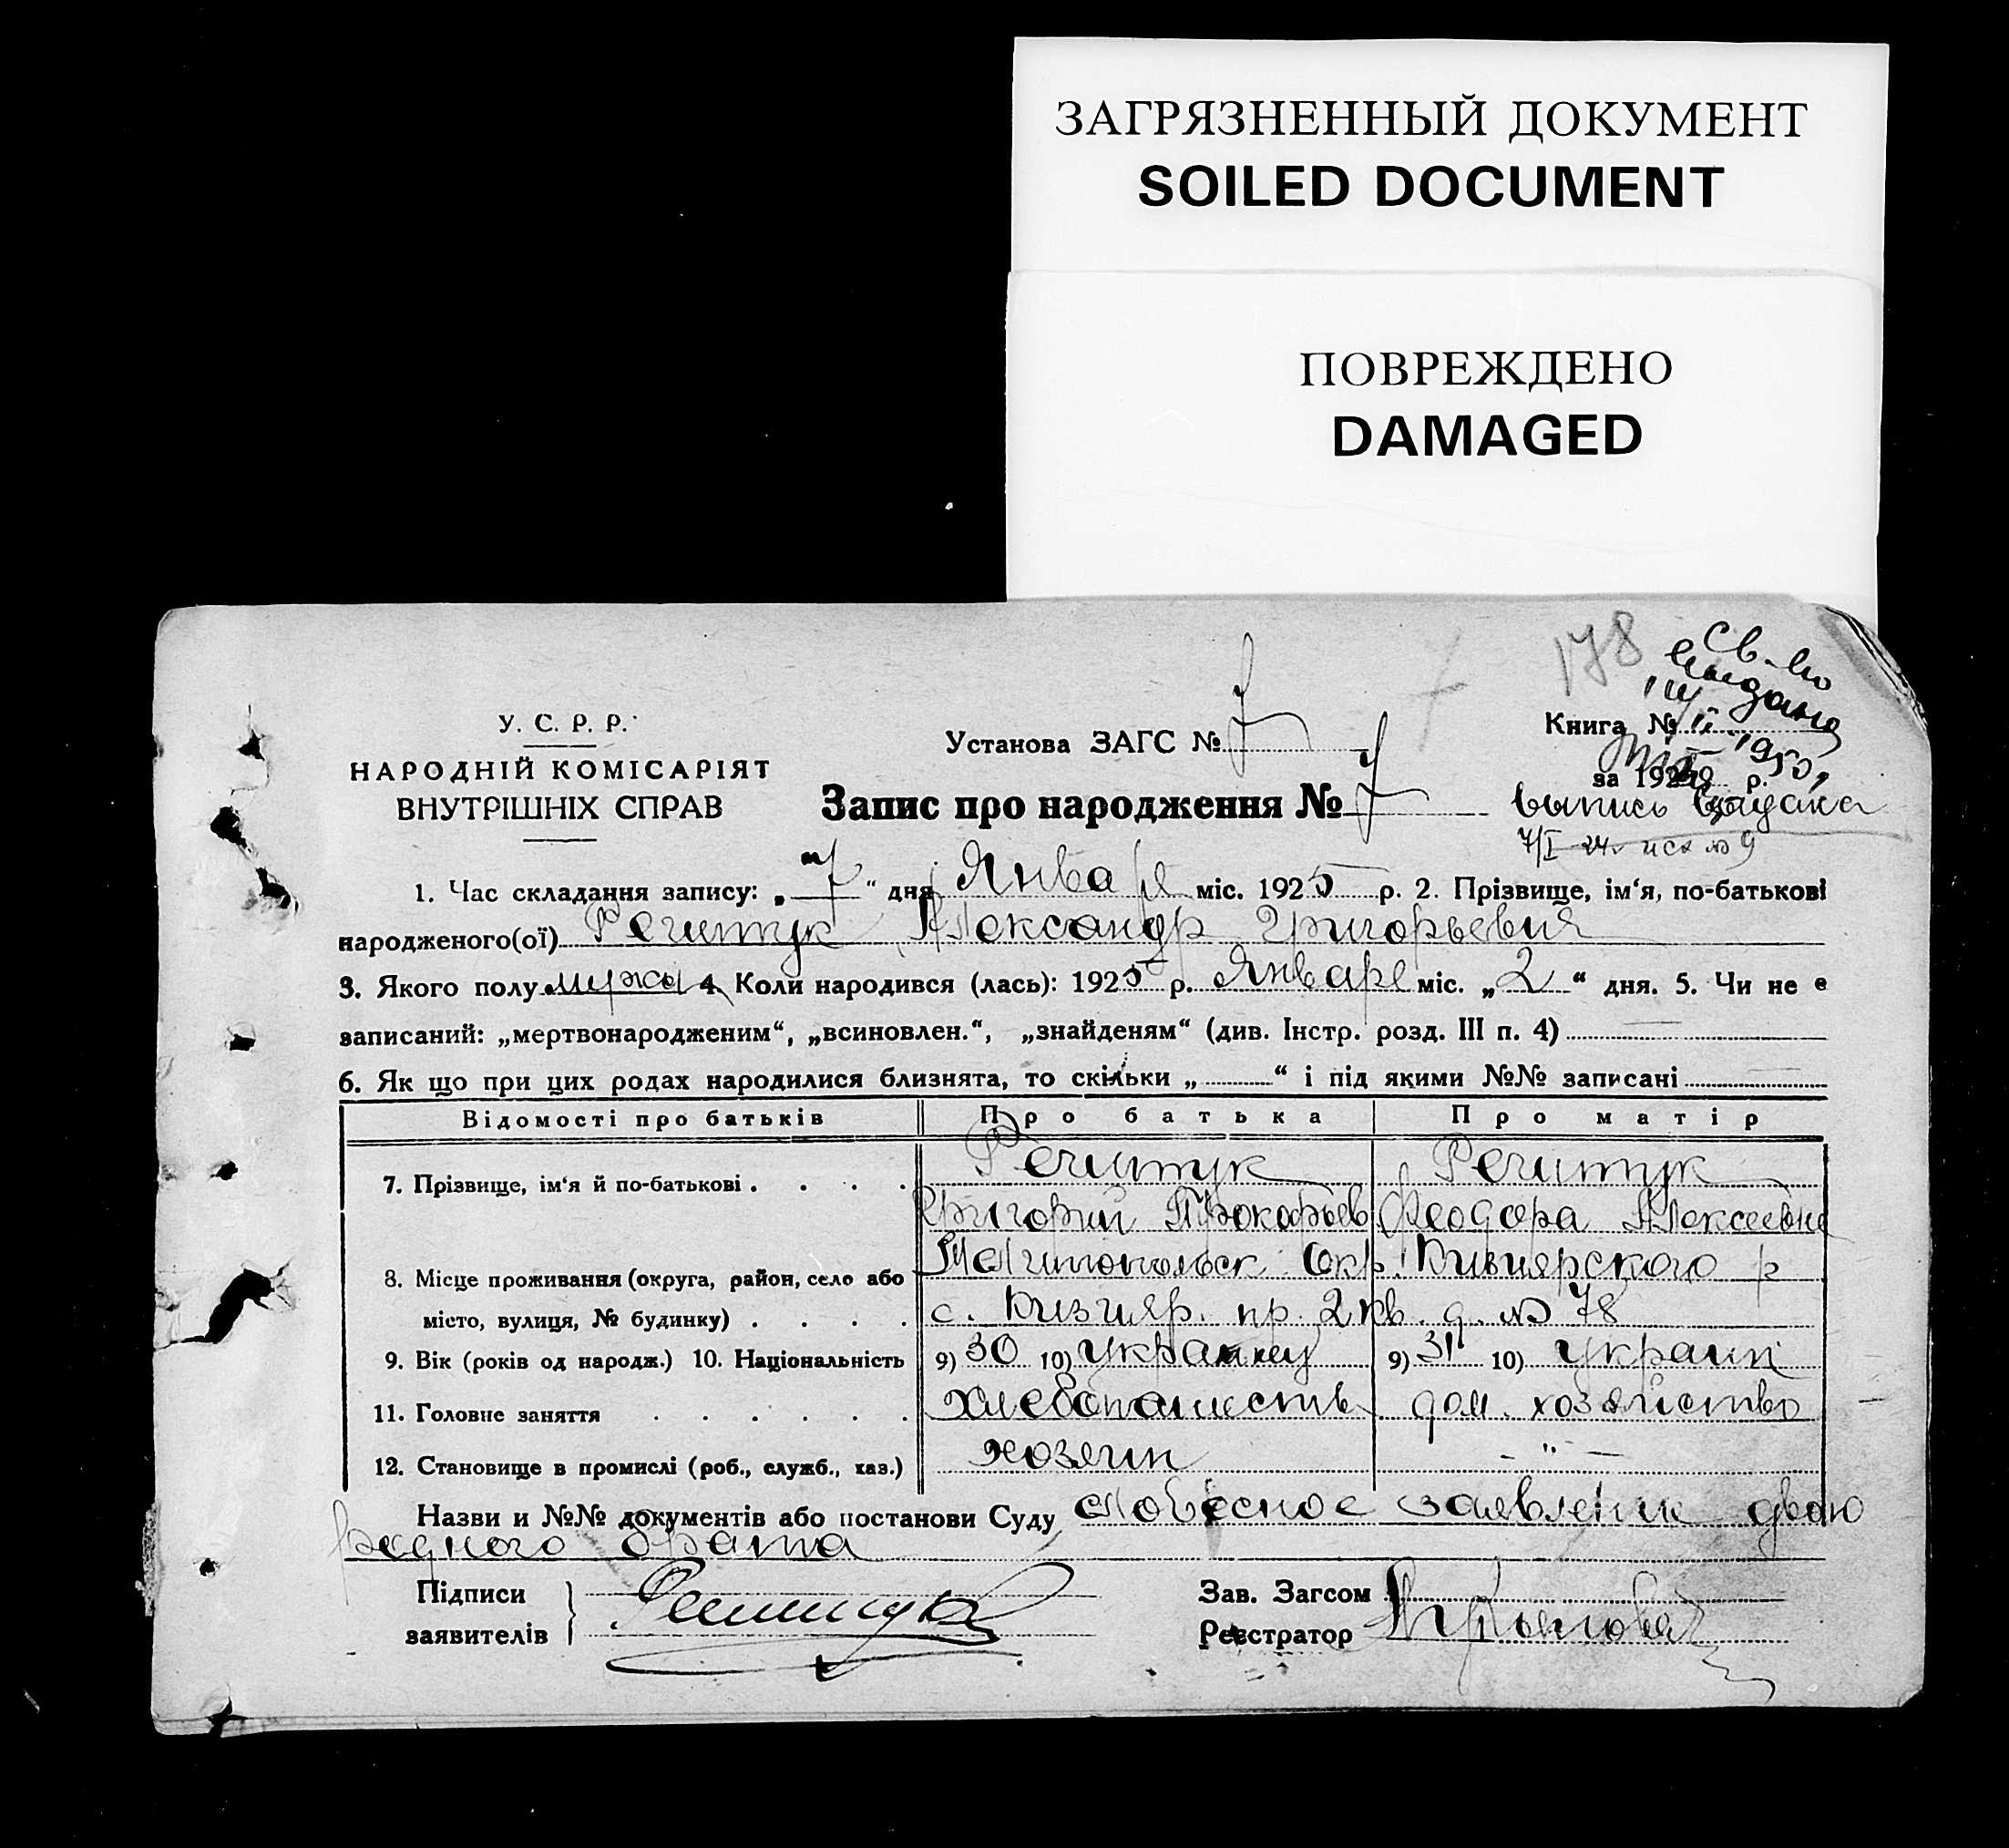 ЗАГРЯЗНЕННЫЙ ДОКУМЕНТ
SOILED DOCUMENT
ПОВРЕЖДЕНО
DAMAGED
178
Св-во
выдано
1950
У. С. Р. Р.
НАРОДНІЙ КОМІСАРІЯТ
ВНУТРІШНІХ СПРАВ
Установа ЗАГС № 7
Книга №
за 192 р.
Запис про народження № 7
выпись выдана
7/I
1. Час складання запису: „ 7 “ дня Января міс. 1925 р. 2. Прізвище, ім‘я, по-батькові
народженого(ої) Речитук Александр Григорьевич
3. Якого полу мужск 4. Коли народився (лась): 1925 р. Января міс. „ 2 “ дня. 5. Чи не є
записаний: „мертвонародженим“, „всиновлен.“, „знайденям“ (див. Інстр. розд. III п. 4)
6. Як що при цих родах народилися близнята, то скільки „ “ і під якими №№ записані
Відомості про батьків Про батька Про матір
7. Прізвище, ім‘я й по-батькові Речитук Речитук
Григорий Прокофьев Феодора Алексеевна
8. Місце проживання (округа, район, село або Мелитопольск Окр. Кизиярского р
місто, вулиця, № будинку) с. Кизияр. пр. 2 кв. д. № 78
9. Вік (років од народж.) 10. Національність 9) 30 10) украинец 9) 31 10) украин
11. Головне заняття хлебопашеств дом. хозяйство
12. Становище в промислі (роб., служб., хаз.) хозяин - " -
Назви и №№ документів або постанови Суду словесное заявление двою
родного брата
Підписи
заявителів
Зав. Загсом
Реєстратор